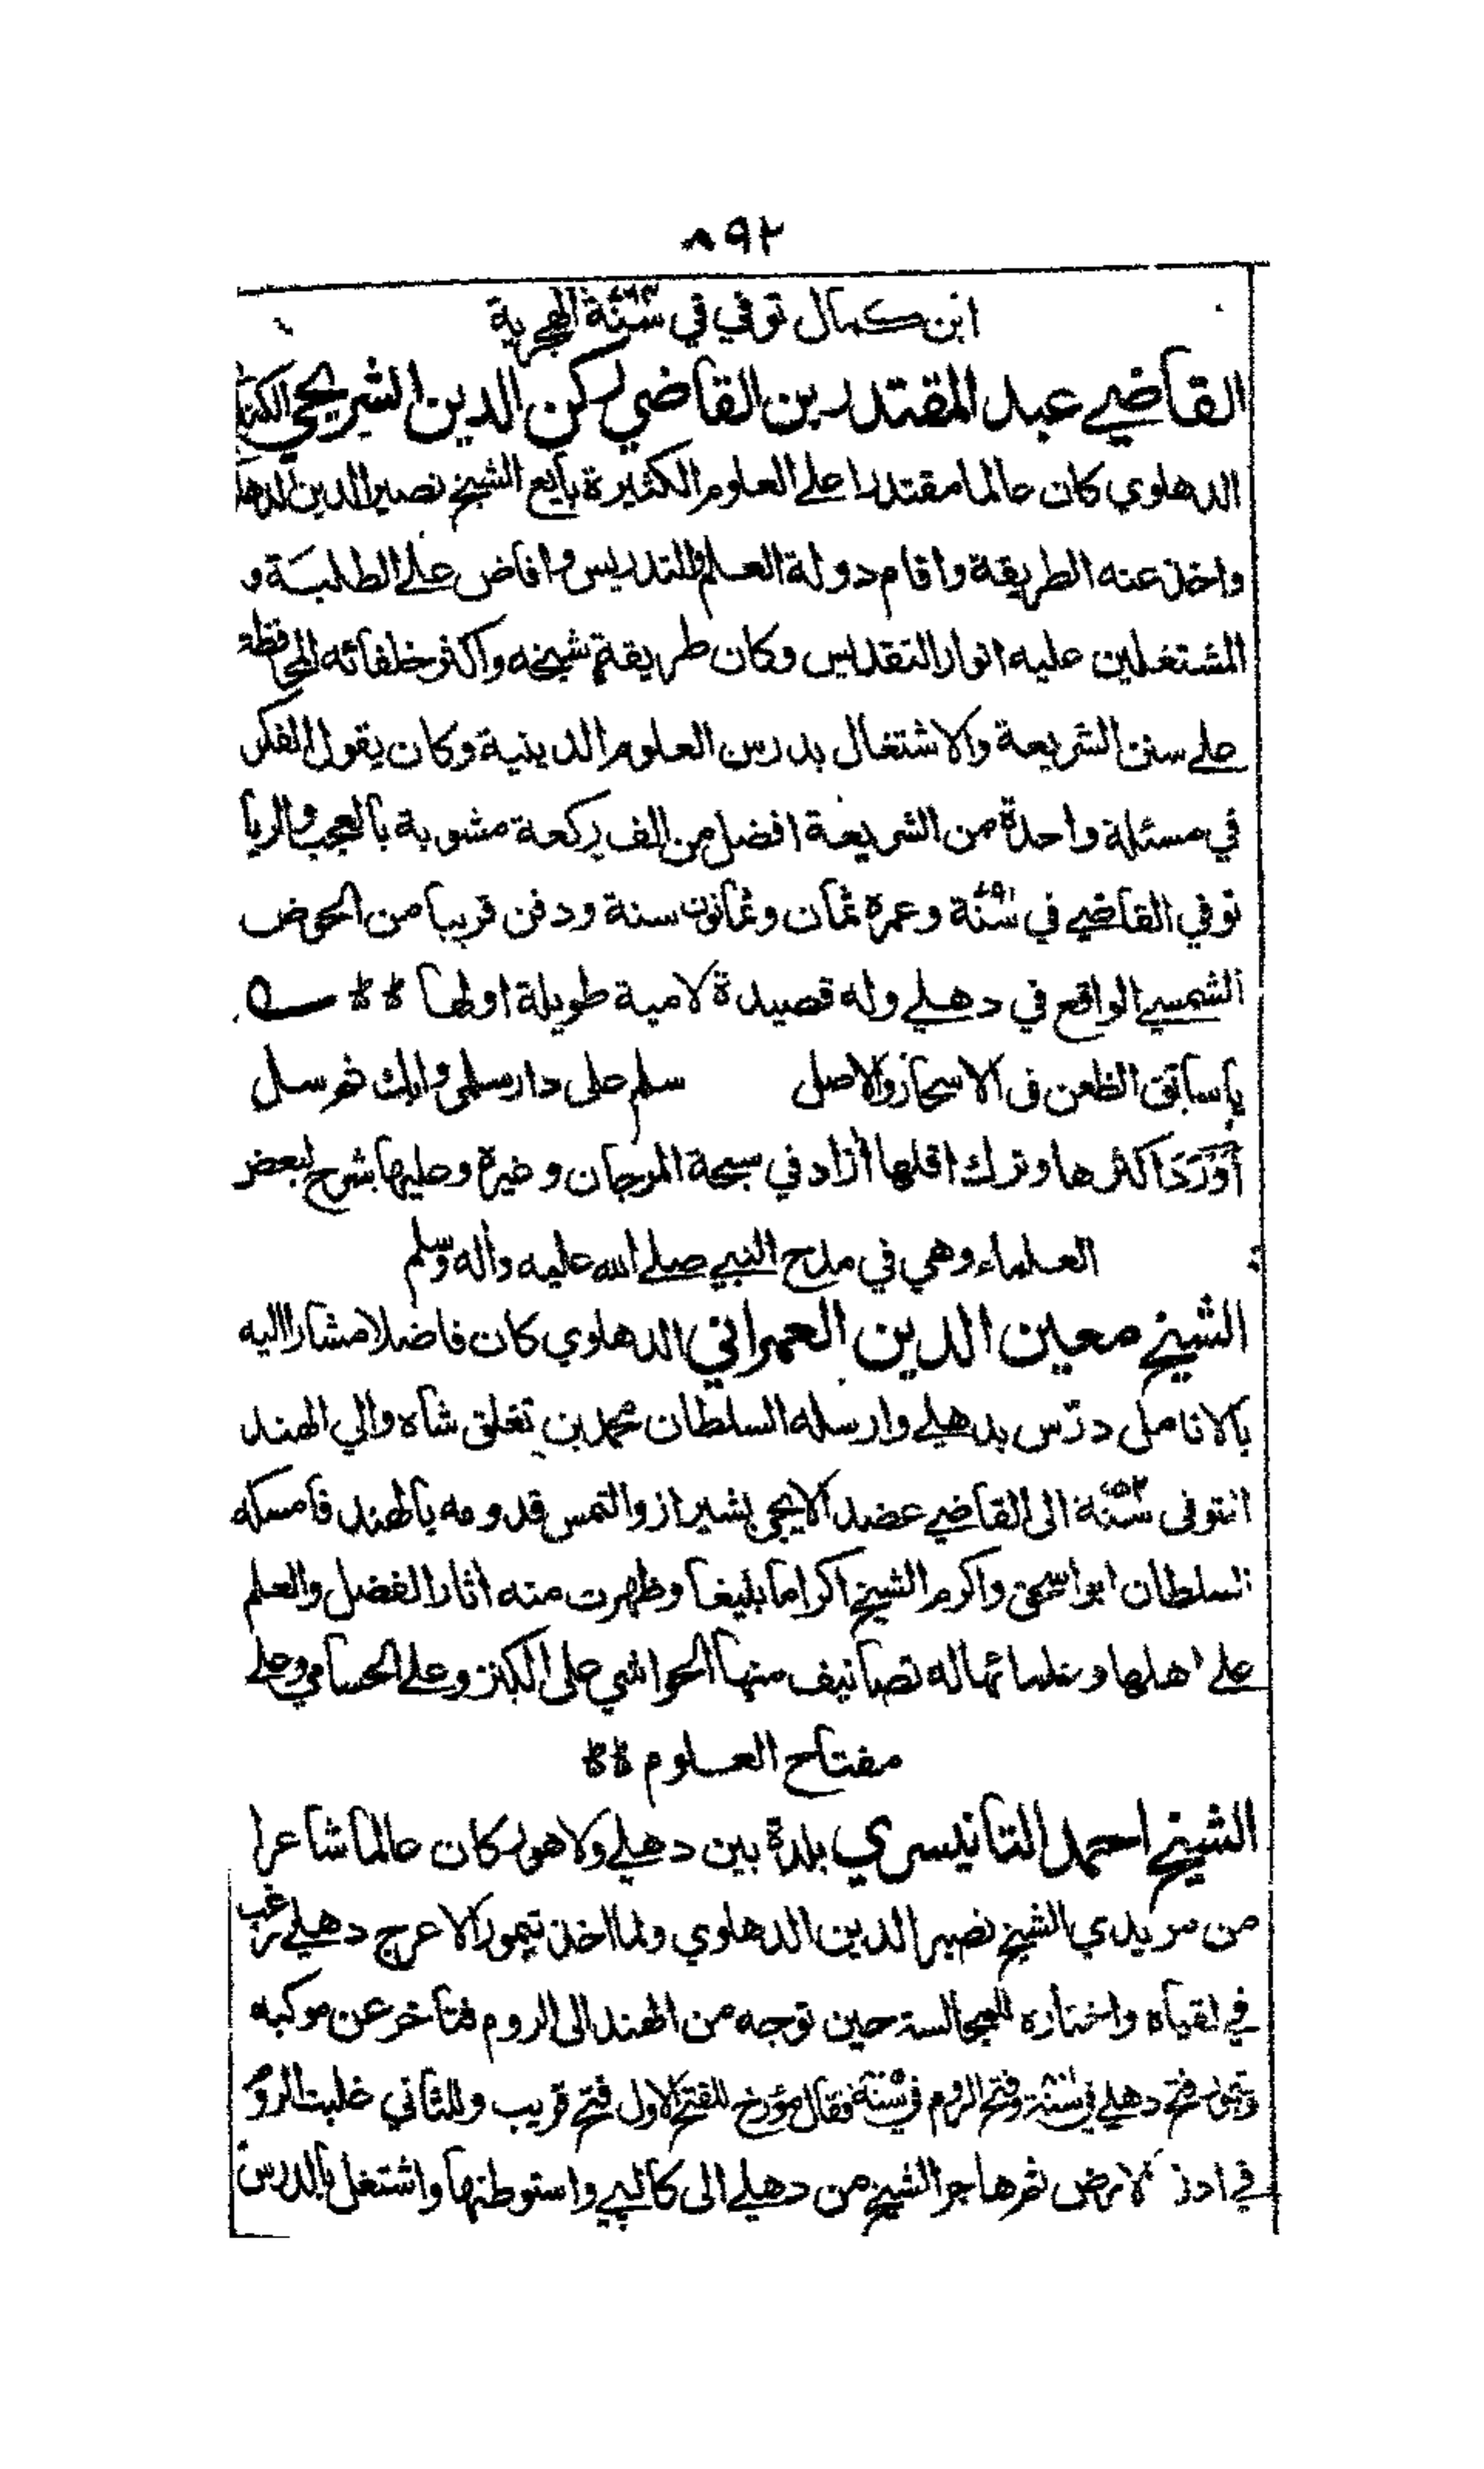 ٨٩٢
ابن كمال توفي في سنة الهجرية
القاضي عبد المقتدر بن القاضي ركن الدين الشريحي الكندي
الدهلوي كان عالما مقتدرا على العلوم الكثيرة بايع الشيخ نصير الدين الدهلوي
واخذ عنه الطريقة واقام دولة العلم والتدريس وافاض على الطلبة و
المشتغلين عليه انوار التقديس وكان طريقة شيخه واكثر خلفائه المحافظة
على سنن الشريعة والاشتغال بدرس العلوم الدينية وكان يقول الفكر
في مسئلة واحدة من الشريعة افضل من الف ركعة مشوبة بالعجب والريا
توفي القاضي في سنة ٧٩١ وعمره ثمان وثمانون سنة ودفن قريبا من الحوض
الشمسي الواقع في دهلي وله قصيدة لامية طويلة اولها
يا سائق الظعن في الاسحار والاصل سلم على دار سلمى وابك ثم سل
أَوْرَدَ اكثرها وترك اقلها أزاد في سبحة المرجان وغيره وعليها شرح لبعض
العلماء وهي في مدح النبي صلى الله عليه وأله وسلم
الشيخ معين الدين العمراني الدهلوي كان فاضلا مشارا اليه
بالانامل درّس بدهلي وارسله السلطان محمد بن تغلق شاه والي الهند
المتوفى سنة ٧٥٢ الى القاضي عضد الايجي بشيراز والتمس قدومه بالهند فامسكه
السلطان ابو اسحق واكرم الشيخ اكراما بليغا وظهرت منه اثار الفضل والعلم
على اهلها وعلمائها له تصانيف منها الحواشي على الكنز وعلى الحسامي وعلى
مفتاح العلوم
الشيخ احمد التانيسري بلدة بين دهلي ولاهور كان عالما شاعرا
من مريدي الشيخ نصير الدين الدهلوي ولما اخذ تيمور الاعرج دهلي رغب
في لقياه واختاره للمجالسة حين توجه من الهند الى الروم فتاخر عن موكبه
وتيمور فتح دهلي في سنة وفتح الروم في سنة فقال مؤرخ للفتح الاول فتح قريب وللثاني غلبت الروم
في ادنى الارض ثم هاجر الشيخ من دهلي الى كالپي واستوطنها واشتغل بالدرس